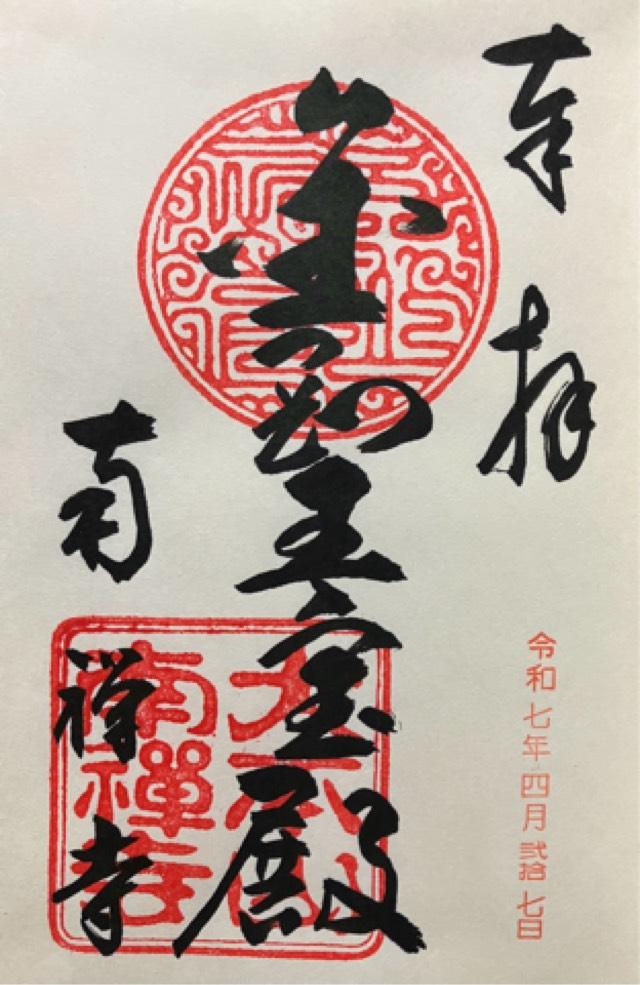 奉拝
金剛王宝殿
南禅寺
大本山
南禪寺
令和七年四月弐拾七日